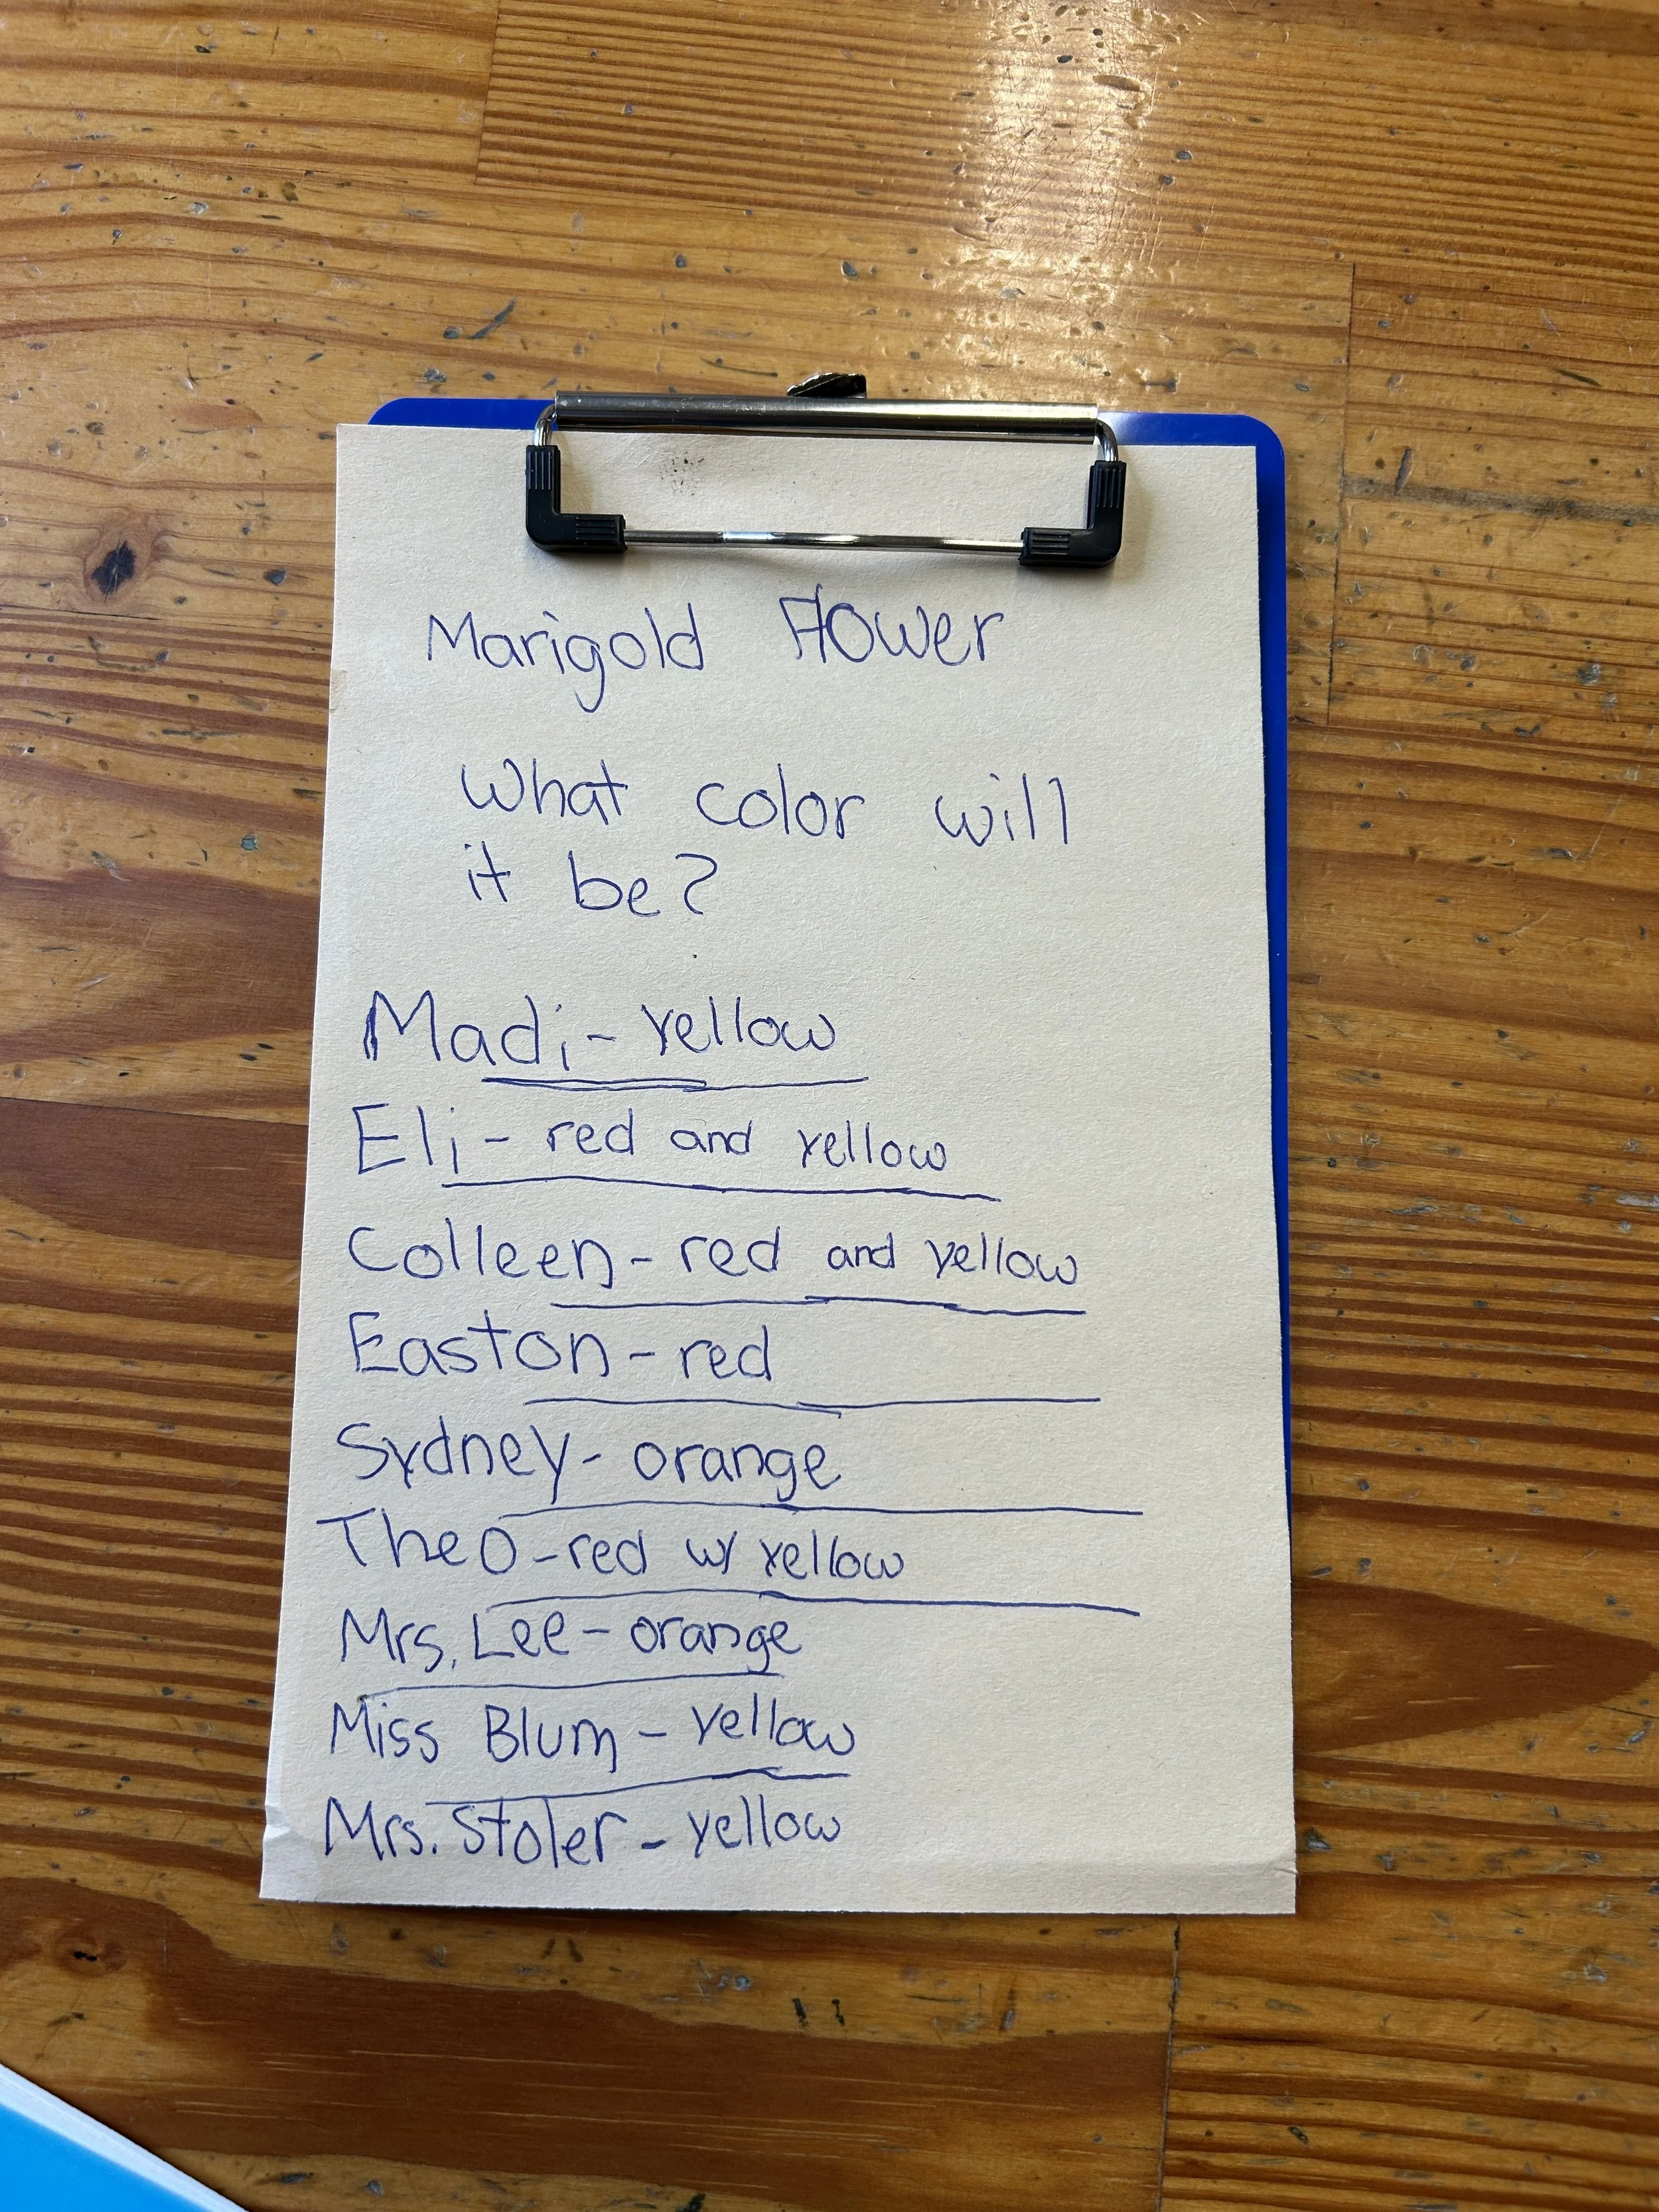 Marigold Flower
What color will
it be?
Madi - yellow
Eli - red and yellow
Colleen - red and yellow
Easton - red
Sydney - orange
Theo - red w/ yellow
Mrs. Lee - orange
Miss Blum - yellow
Mrs. Stoler - yellow